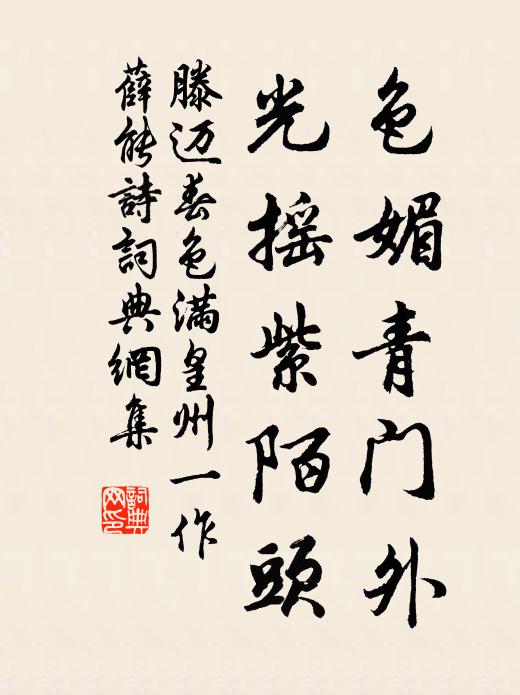 色媚青门外
光摇紫陌頭
滕迈春色满皇州一作
薛能詩詞典網集
詞典
网印